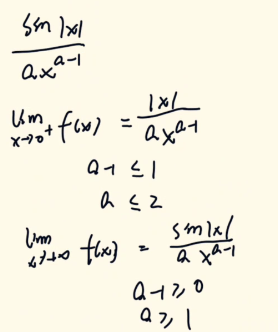 sin |x|
a x^{a-1}
lim x→0^+ f(x) = |x| / a x^{a-1}
a-1 ≤ 1
a ≤ 2
lim x→+∞ f(x) = sin|x| / a x^{a-1}
a-1 ≥ 0
a ≥ 1